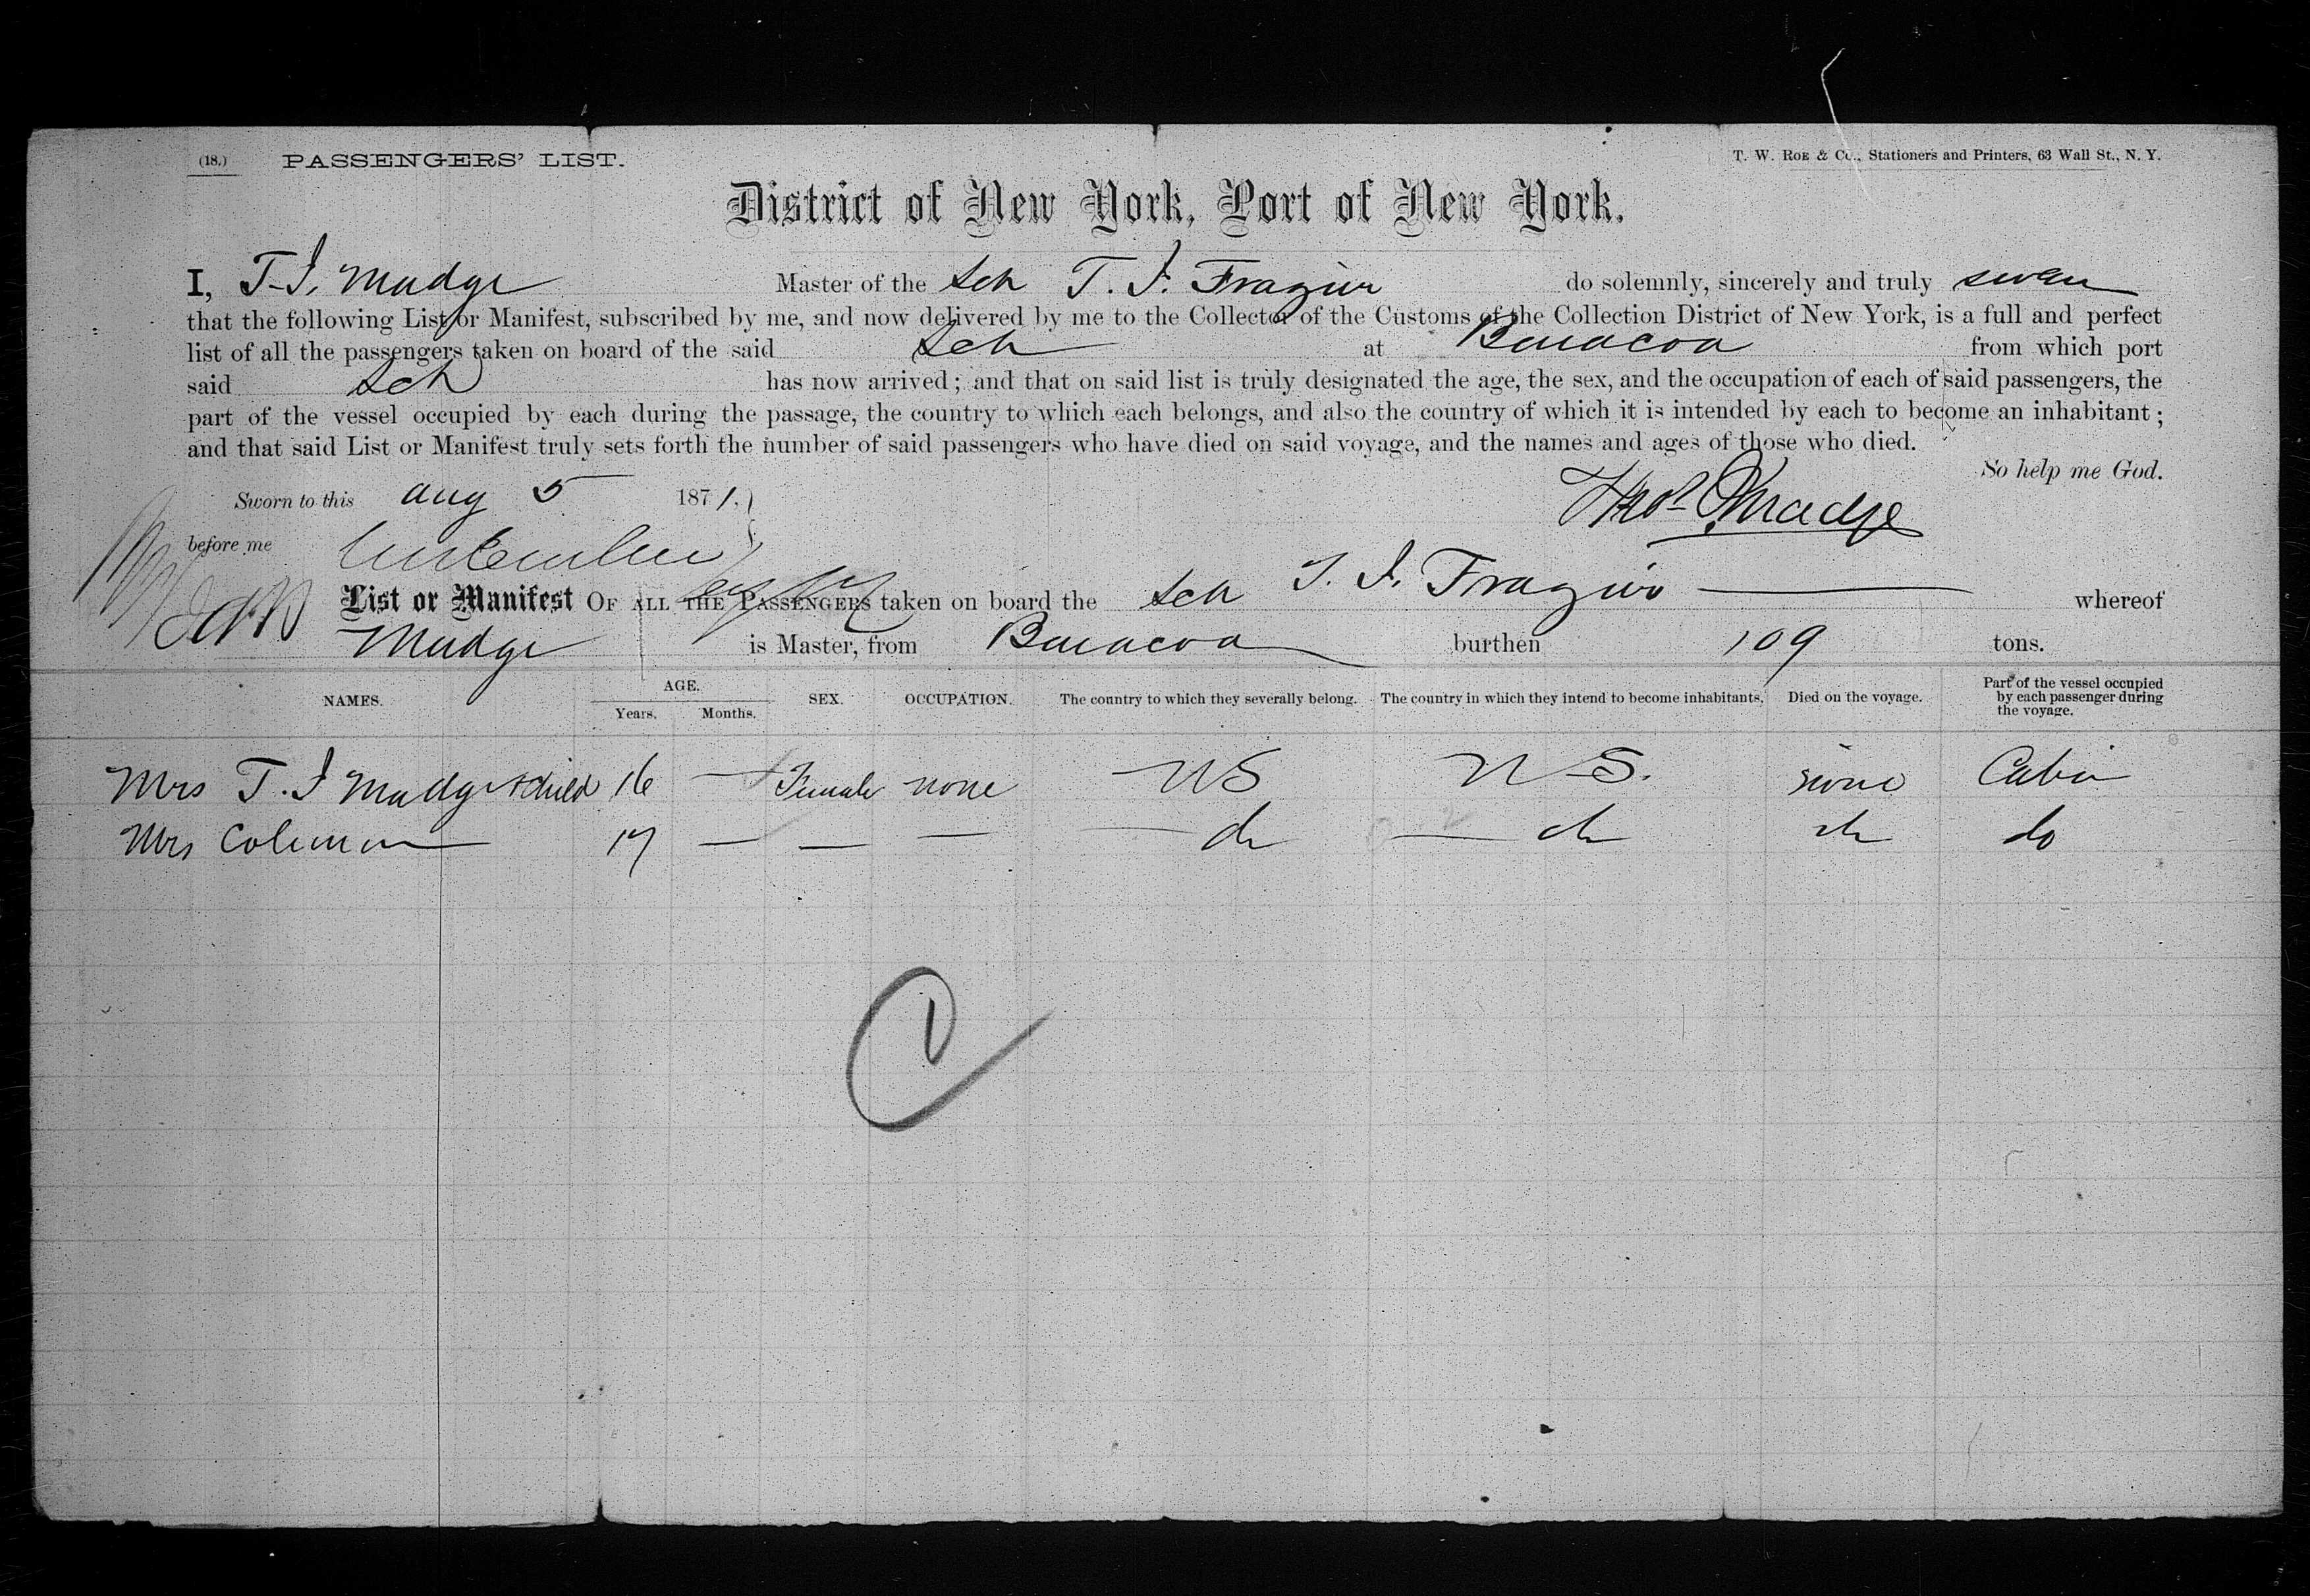 (18.) PASSENGERS' LIST. T. W. ROE & Co., Stationers and Printers, 63 Wall St., N. Y.
District of New York, Port of New York.
I, T. I. Mudge Master of the Sch T. I. Frazier do solemnly, sincerely and truly swear
that the following List or Manifest, subscribed by me, and now delivered by me to the Collector of the Customs of the Collection District of New York, is a full and perfect
list of all the passengers taken on board of the said Sch at Baracoa from which port
said Sch has now arrived; and that on said list is truly designated the age, the sex, and the occupation of each of said passengers, the
part of the vessel occupied by each during the passage, the country to which each belongs, and also the country of which it is intended by each to become an inhabitant;
and that said List or Manifest truly sets forth the number of said passengers who have died on said voyage, and the names and ages of those who died.
So help me God.
Sworn to this Aug 5 1871.
Mudge
before me
List or Manifest OF ALL THE PASSENGERS taken on board the Sch T. I. Frazier whereof
Mudge is Master, from Baracoa burthen 109 tons.
NAMES. AGE. Years. Months. SEX. OCCUPATION. The country to which they severally belong. The country in which they intend to become inhabitants. Died on the voyage. Part of the vessel occupied by each passenger during the voyage.
Mrs T. I Mudge & child 16 — Female none US U-S. none Cabin
Mrs Coleman 17 — — — do do do do
1